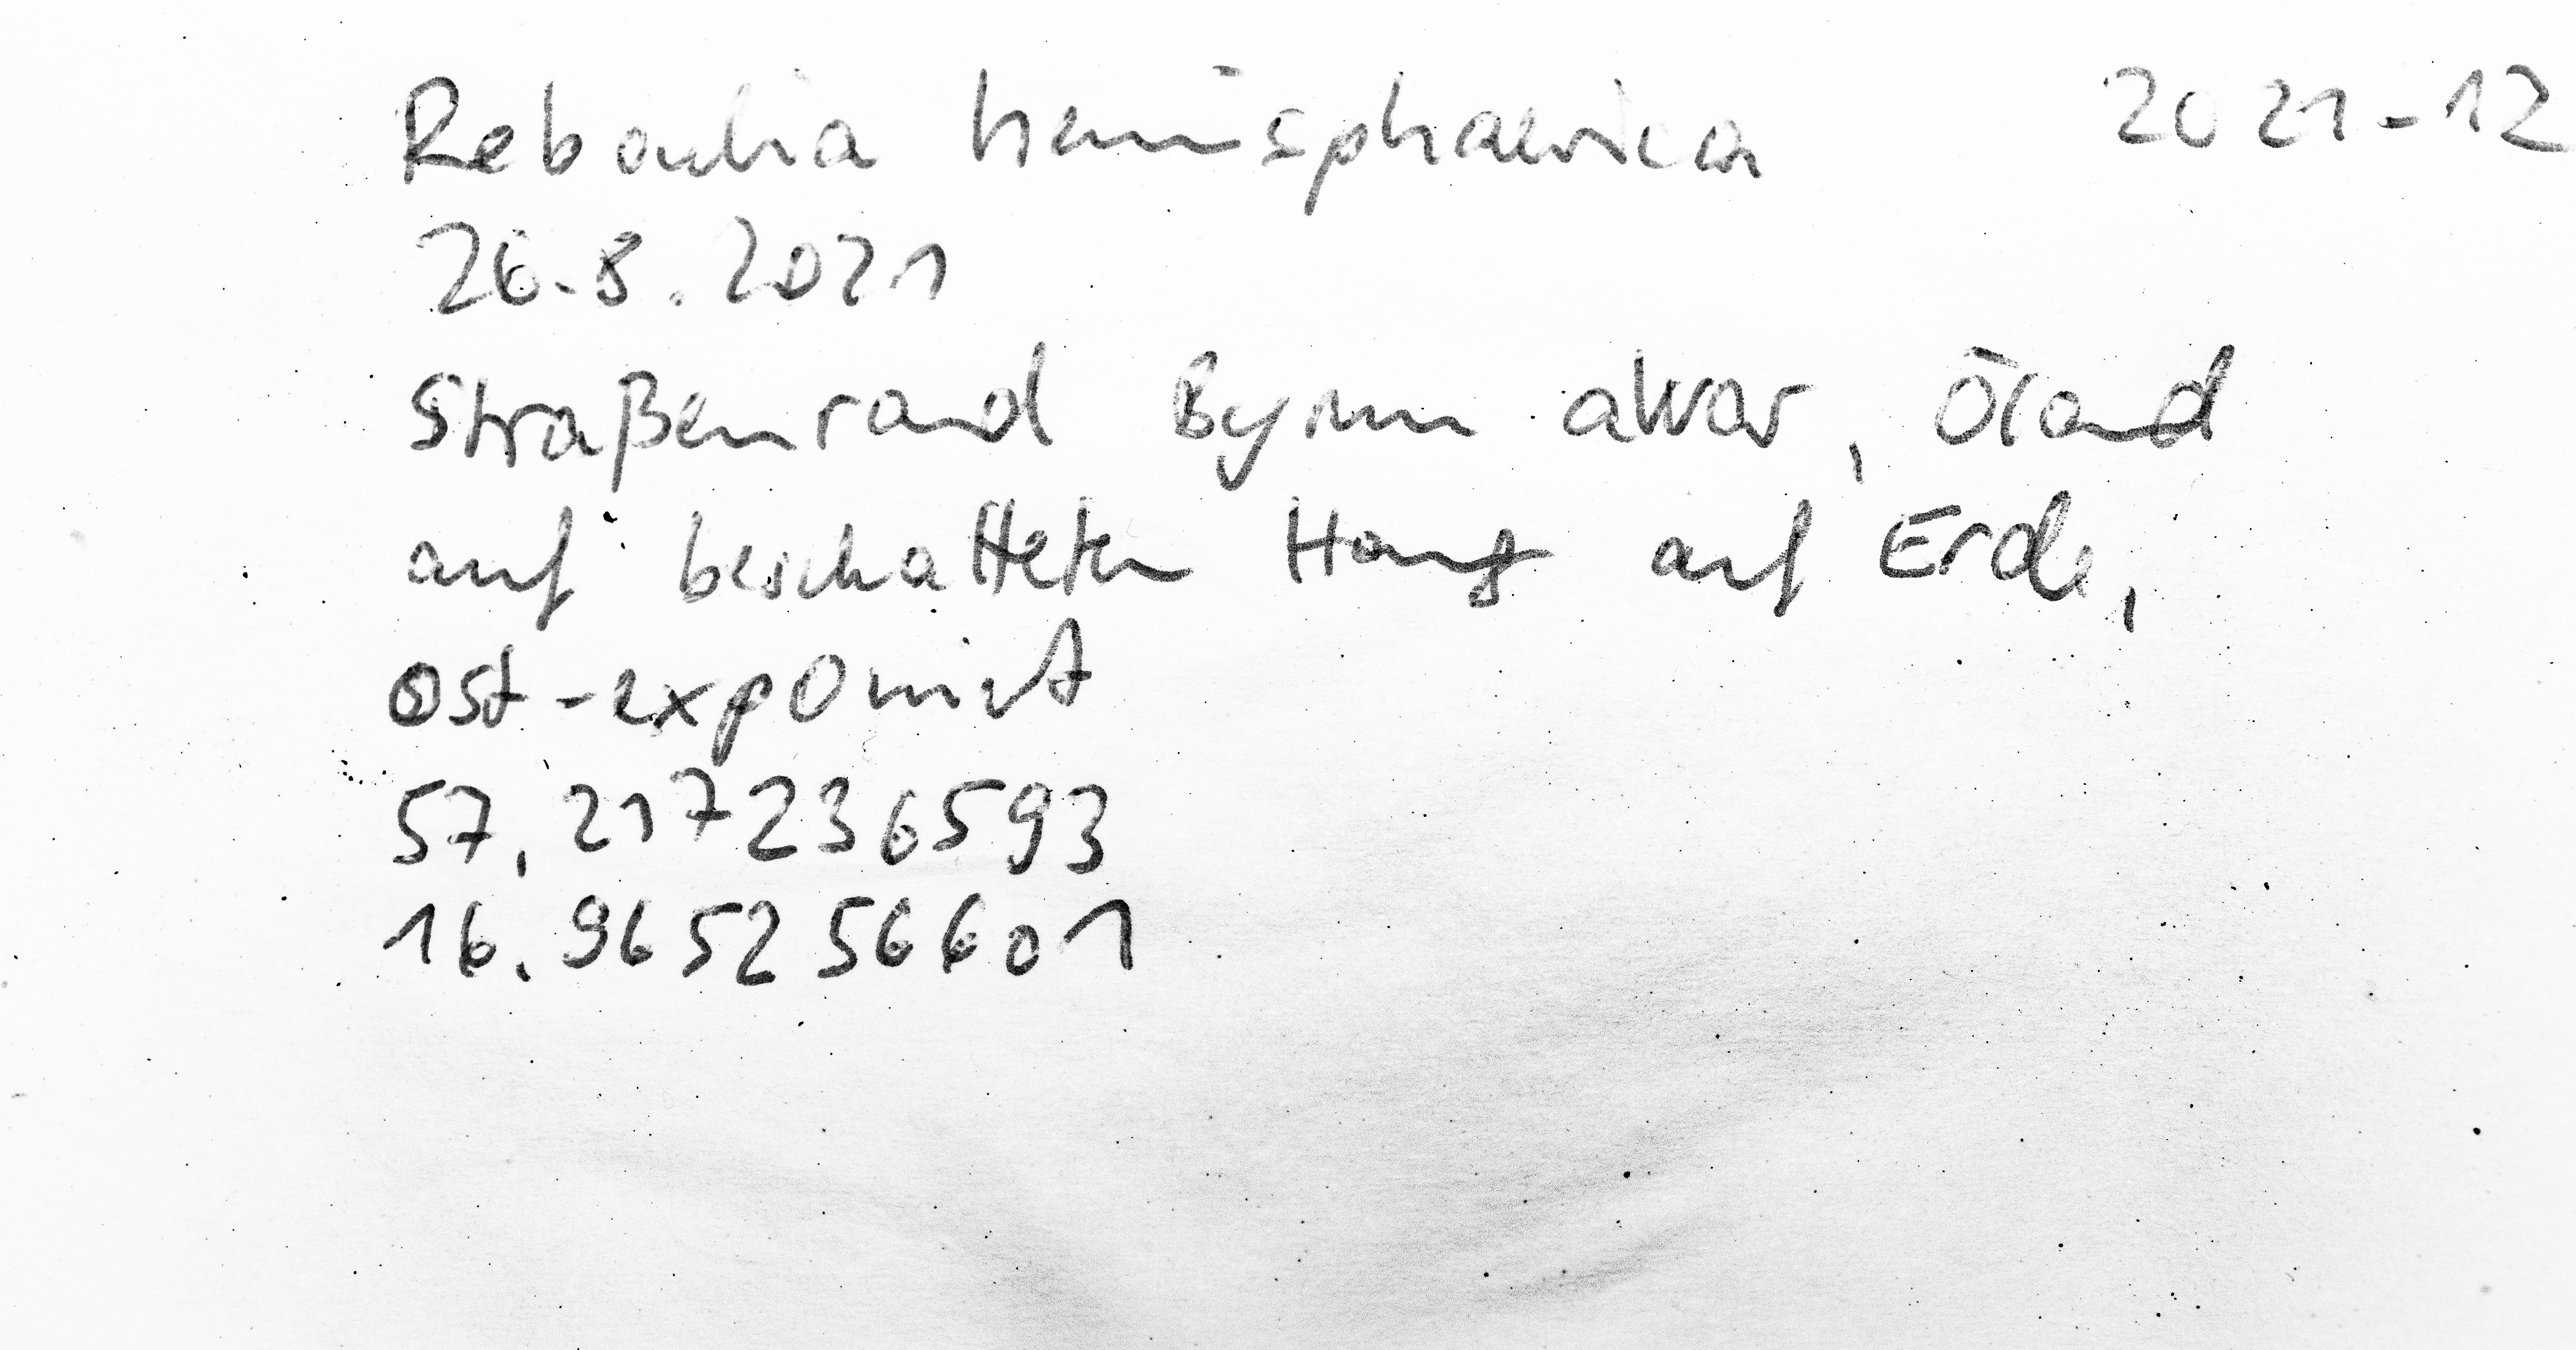 Reboulia hemisphaerica 2021-12
26.8.2021
Straßenrand Byrum alvar, Öland
auf beschatteten Hang auf Erde,
Ost-exponiert
57,217236593
16.965256601